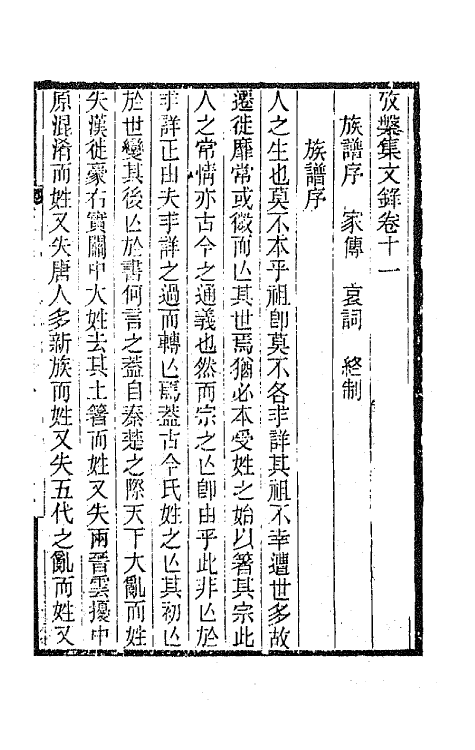 攷槃集文錄卷十一
族譜序 家傳 哀詞 終制
族譜序
人之生也莫不本乎祖卽莫不各求詳其祖不幸遭世多故
遷徙靡常或微而亾其世焉猶必本受姓之始以箸其宗此
人之常情亦古今之通義也然而宗之亾卽由乎此非亾於
求詳正由夫求詳之過而轉亾焉葢古今氏姓之亾其初亾
於世變其後亾於書何言之葢自秦楚之際天下大亂而姓
失漢徙豪右實關中大姓去其土箸而姓又失兩晉雲擾中
原混淆而姓又失唐人多新族而姓又失五代之亂而姓又